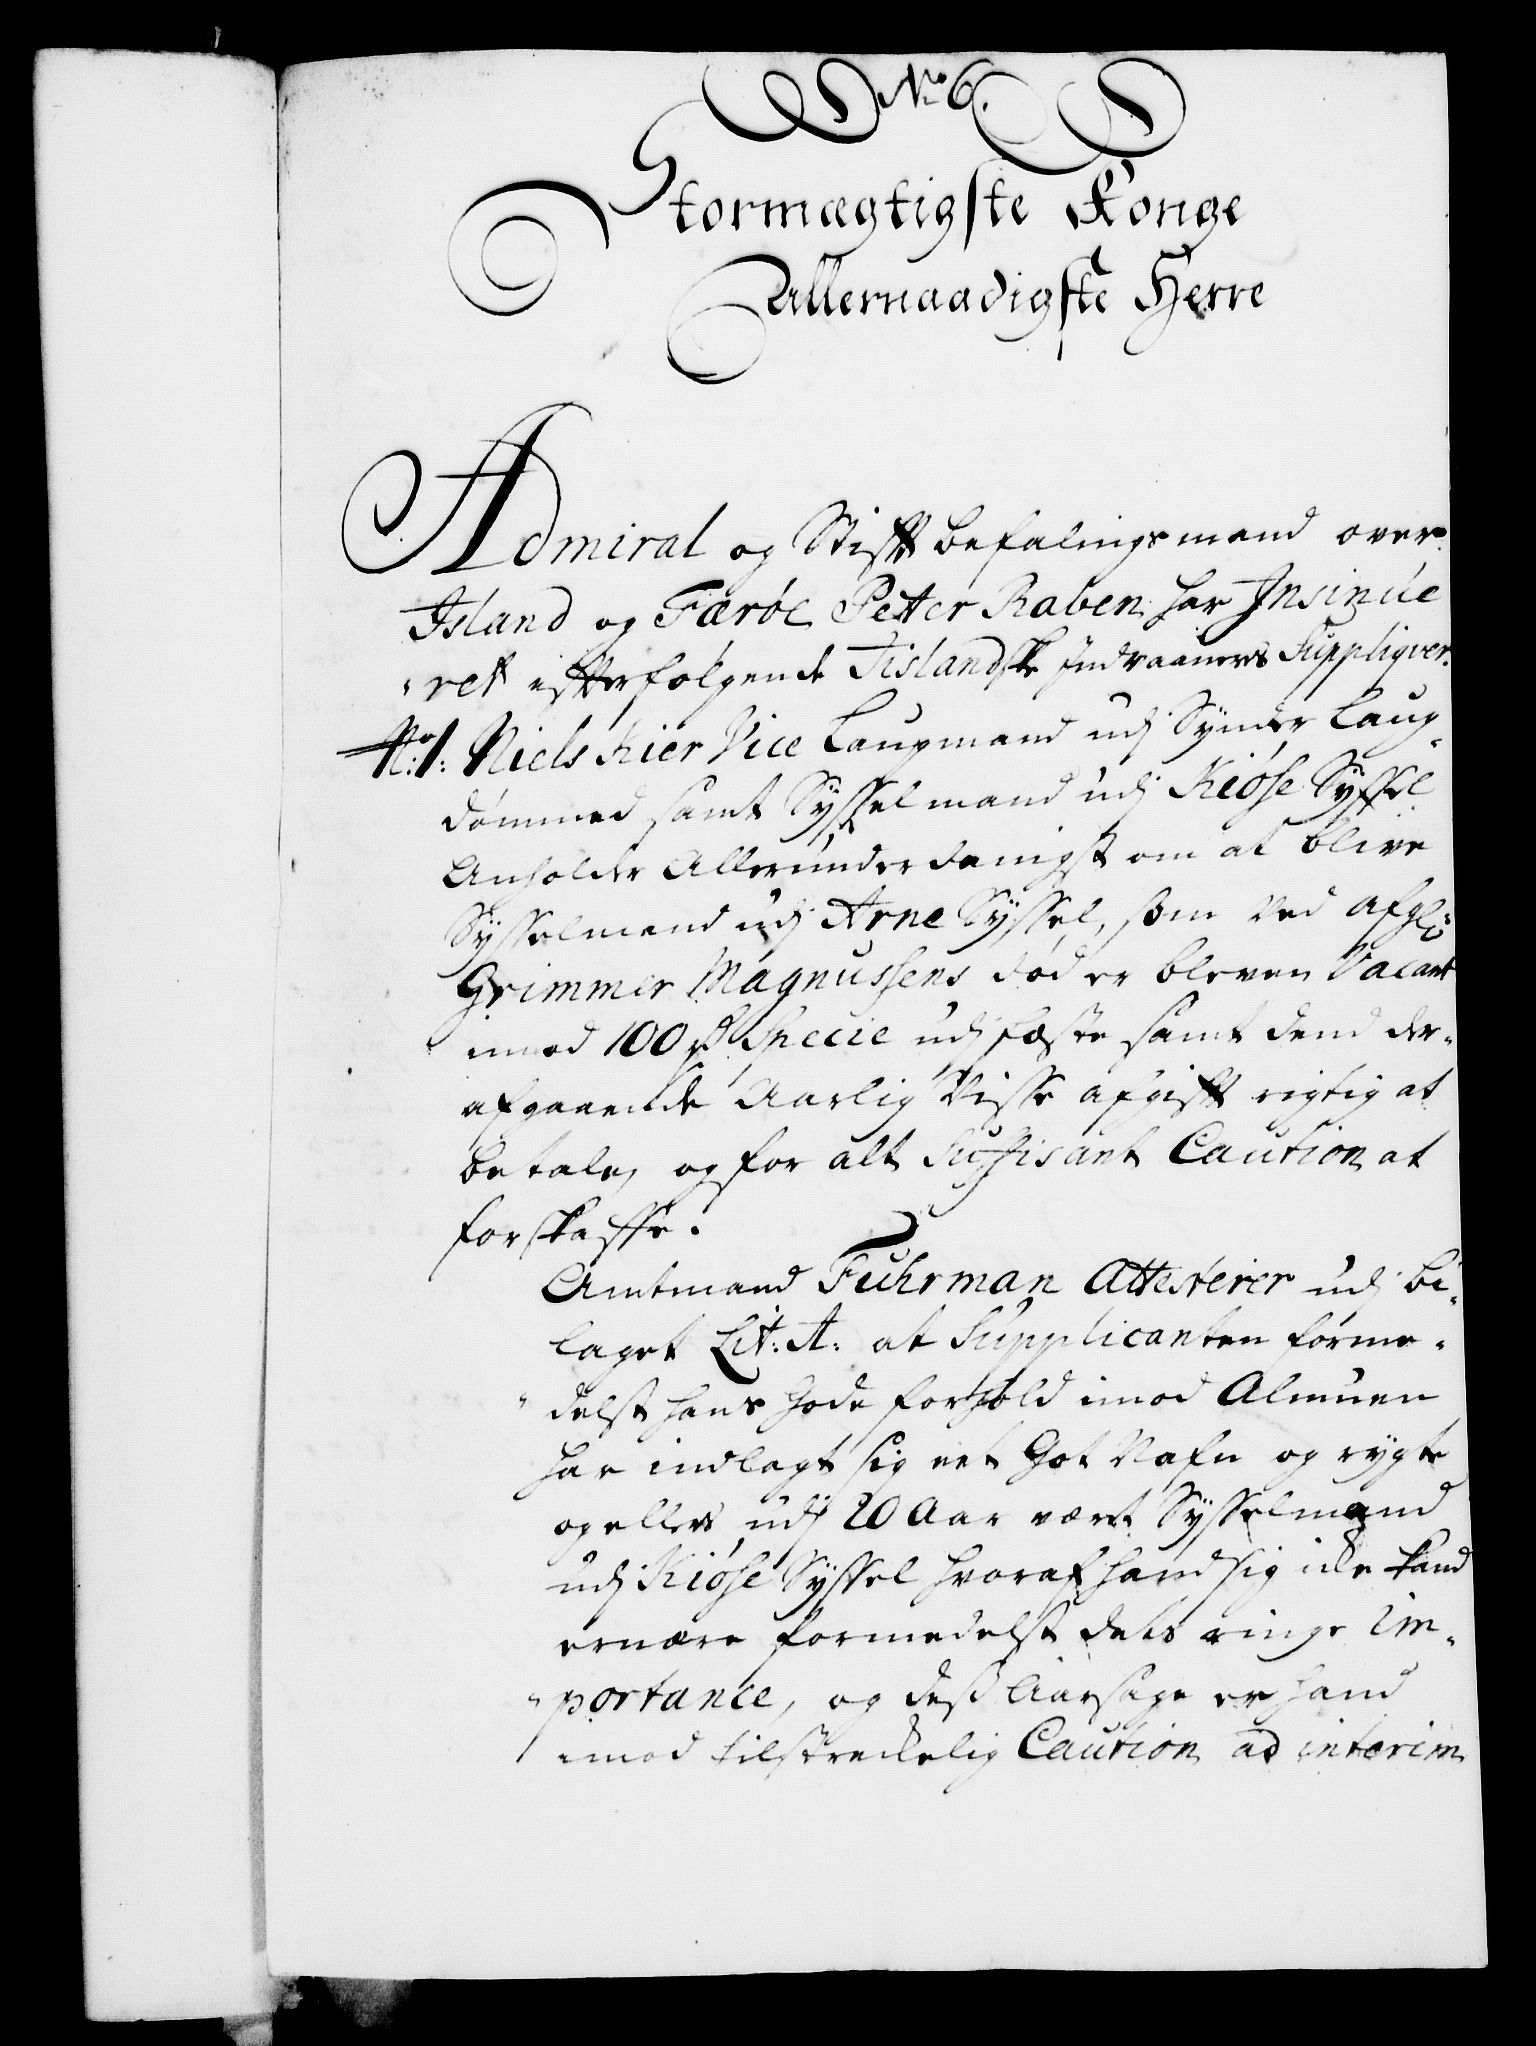 No 6.
Stormægtigste Konge
Allernaadigste Herre
Admiral og Stifft befalingsmand over
Island og Færöe Petter Raben har Insinue
ret efterfølgende Iislandske Indvaaners Suppliqver.
No 1. Niels Kier Vice Laugmand udj Synder Laug-
dömmed samt Sysselmand udj Kiöse Syssel
Anholder Allerunderdanigst om at blive
Sysselmand udj Arne Syssel, som ved afgl:
Grimmer Magnussens död er bleven Vacant
imod 100 Specie udj fæste samt dend der-
afgaaende Aarlig Visse afgifft rigtig at
betale, og for alt Suffisant Caution at
forskaffe.
Amtmand Fuhrman Attesterer udj bi-
laget Lit: A: at Supplicanten forme-
delst hans Gode forhold imod Almuen
har indlagt sig eet Got Nafn og rygte
og ellers udj 20 Aar vært Sysselmand
udj Kiöse Syssel hvoraf hand sig icke kand
ernære formedelst dets ringe Im-
portance, og deß Aarsage er hand
imod tilstreckelig Caution ad interim